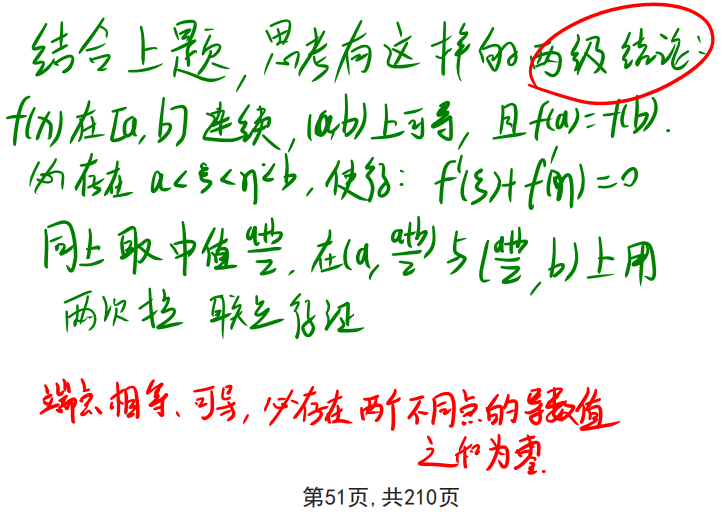 结合上题,思考有这样的两级结论:
f(x)在[a,b]连续,(a,b)上可导,且f(a)=f(b).
必存在 a<ξ<η<b,使得: f'(ξ)+f'(η)=0
同上取中值 (a+b)/2,在(a,(a+b)/2)与((a+b)/2,b)上用
两次拉 联立得证
端点相等、可导,必存在两个不同点的导数值
之和为零.
第51页,共210页